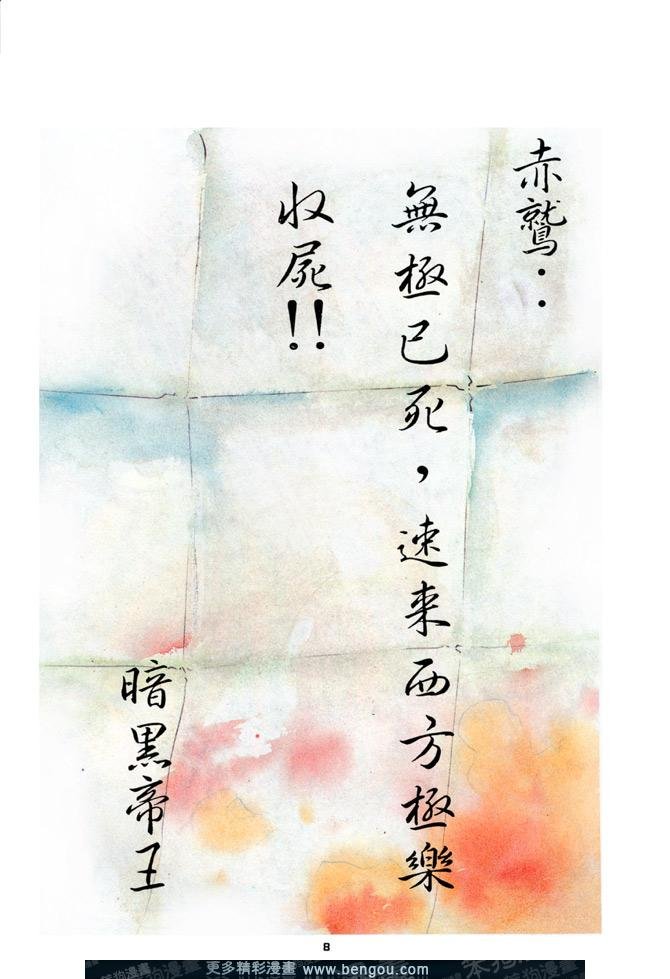 赤鷲：
無極已死，速來西方極樂
收屍!!
暗黑帝王
8
更多精彩漫畫 www.bengou.com